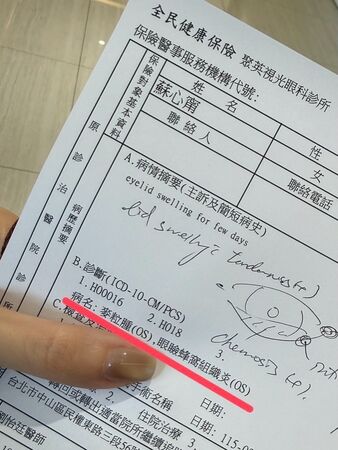 全民健康保險 聚英視光眼科診所
保險醫事服務機構代號:
保險對象基本資料
姓 名
性
蘇心甯
女
聯絡人
聯絡電話
原診治醫院診所
病歷摘要
A.病情摘要(主訴及簡短病史)
eyelid swelling for few days
lid swelling tenderness(+)
chemosis(+)
B.診斷(ICD-10-CM/PCS)
1.H00016 2.H018
3.
病名: 麥粒腫(OS),眼瞼蜂窩組織炎(OS)
手術名稱
日期:
住院治療
日期: 115-0
3.
轉回或轉出適當院所繼續追
台北市中山區民權東路三段56
劉怡廷醫師